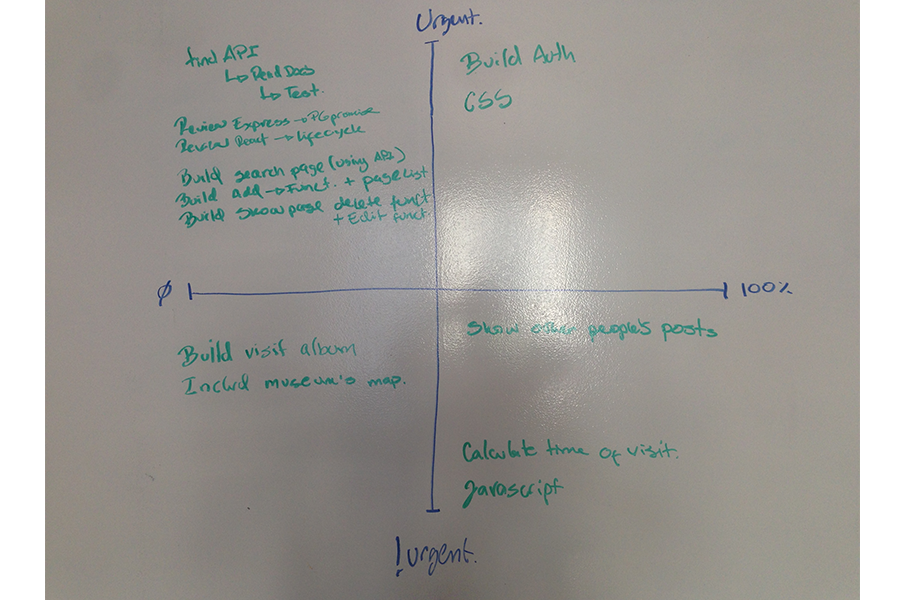 Urgent.
find API
↳ Read Docs
↳ Test.
Review Express → PG promise
Review React → lifecycle
Build search page (using API)
Build add → Funct. + page List
Build Show page delete funct
+ Edit funct.
Build Auth
CSS
∅
100%
Build visit album
Includ museum's map.
Show other people's posts
Calculate time of visit.
Javascript
!urgent.